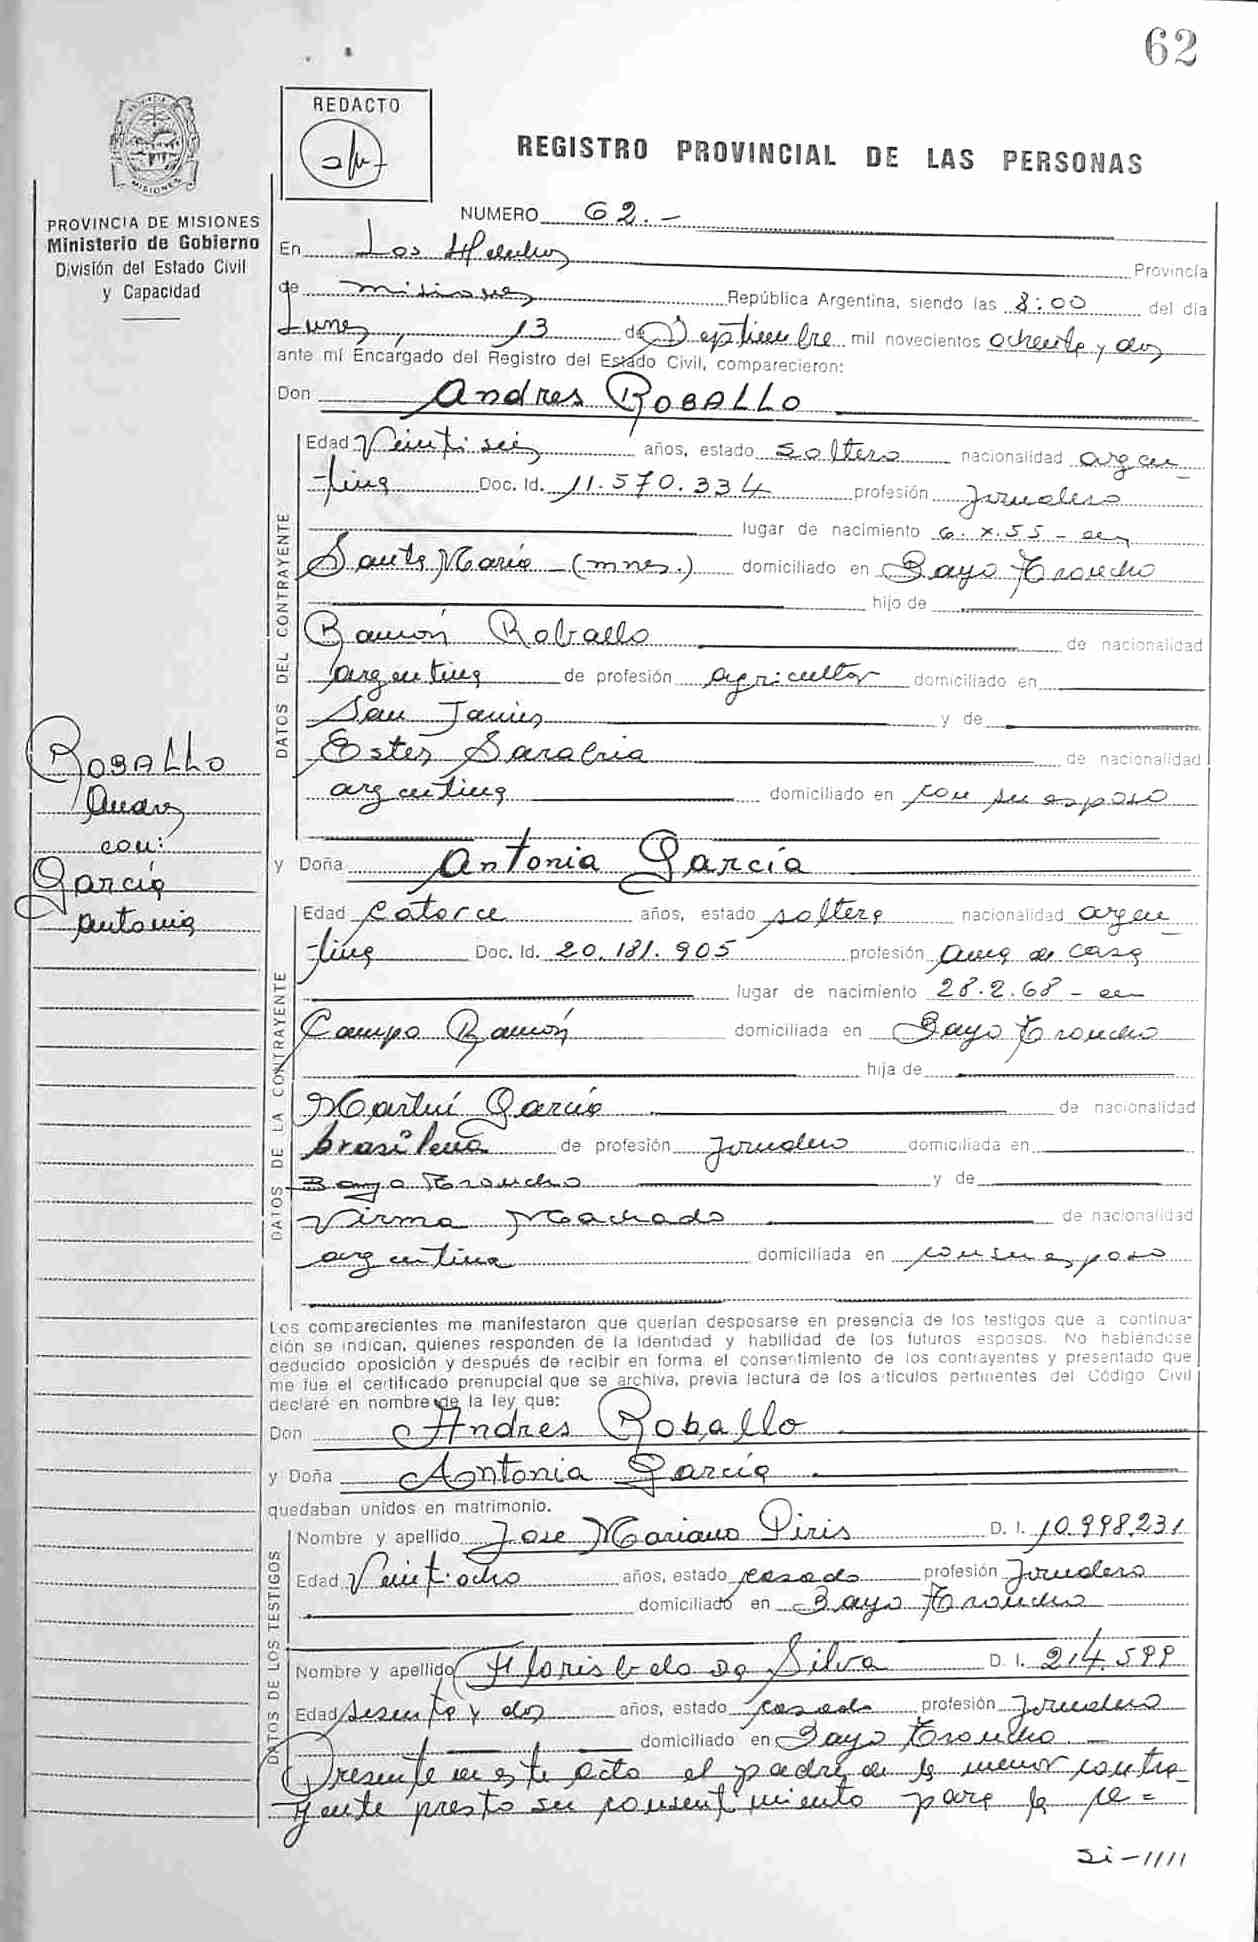 62
REDACTO
REGISTRO PROVINCIAL DE LAS PERSONAS
MISIONES
PROVINCIA DE MISIONES
Ministerio de Gobierno
División del Estado Civil
y Capacidad
NUMERO 62.-
En Los Helechos Provincia
de misiones República Argentina, siendo las 8:00 del día
Lunes, 13 de Septiembre mil novecientos ochenta y dos
ante mí Encargado del Registro del Estado Civil, comparecieron:
Don Andres ROBALLO
DATOS DEL CONTRAYENTE
Edad Veintiseis años, estado soltero nacionalidad argen
-tina Doc. Id. 11.570.334 profesión Jornalero
lugar de nacimiento 6.X.55 - en
Santa María - (mnes.) domiciliado en Bayo Troncho
hijo de
Ramón Roballo de nacionalidad
argentina de profesión agricultor domiciliado en
San Javier y de
Ester Sarabria de nacionalidad
argentina domiciliado en con su esposo
ROBALLO
Andres
con:
García
Antonia
y Doña Antonia García
DATOS DE LA CONTRAYENTE
Edad Catorce años, estado soltera nacionalidad argen
-tina Doc. Id. 20.181.905 profesión ama de casa
lugar de nacimiento 28.2.68 - en
Campo Ramón domiciliada en Bayo Troncho
hija de
Martín García de nacionalidad
brasileña de profesión Jornalero domiciliada en
Bayo Troncho y de
Virma Machado de nacionalidad
argentina domiciliada en con su esposo
Los comparecientes me manifestaron que querían desposarse en presencia de los testigos que a continua-
ción se indican, quienes responden de la identidad y habilidad de los futuros esposos. No habiéndose
deducido oposición y después de recibir en forma el consentimiento de los contrayentes y presentado que
me fue el certificado prenupcial que se archiva, previa lectura de los artículos pertinentes del Código Civil
declaré en nombre de la ley que:
Don Andres Roballo
y Doña Antonia García
quedaban unidos en matrimonio.
DATOS DE LOS TESTIGOS
Nombre y apellido Jose Mariano Piris D. I. 10.998.231
Edad Veintiocho años, estado casado profesión Jornalero
domiciliado en Bayo Troncho
Nombre y apellido Florisbelo Da Silva D. I. 214.599
Edad sesenta y dos años, estado casado profesión Jornalero
domiciliado en Bayo Troncho. -
Presente en este acto el padre de la menor contra
yente presto su consentimiento para la ce=
Si-////